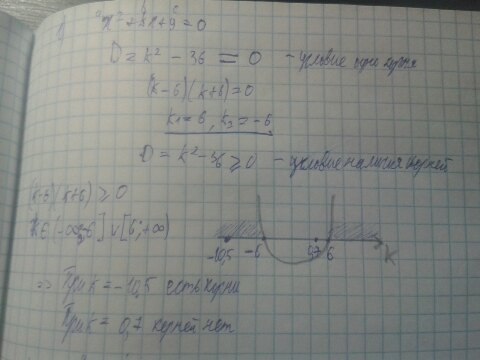 1) x² + kx + 9 = 0
D = k² − 36 = 0 - условие одного корня
(k−6)(k+6) = 0
k₁ = 6, k₂ = −6
D = k² − 36 ≥ 0 - условие наличия корней
(k−6)(k+6) ≥ 0
k ∈ (−∞; −6] ∪ [6; +∞)
−10,5 −6 0,7 6 k
=> При k = −10,5 есть корни
При k = 0,7 корней нет